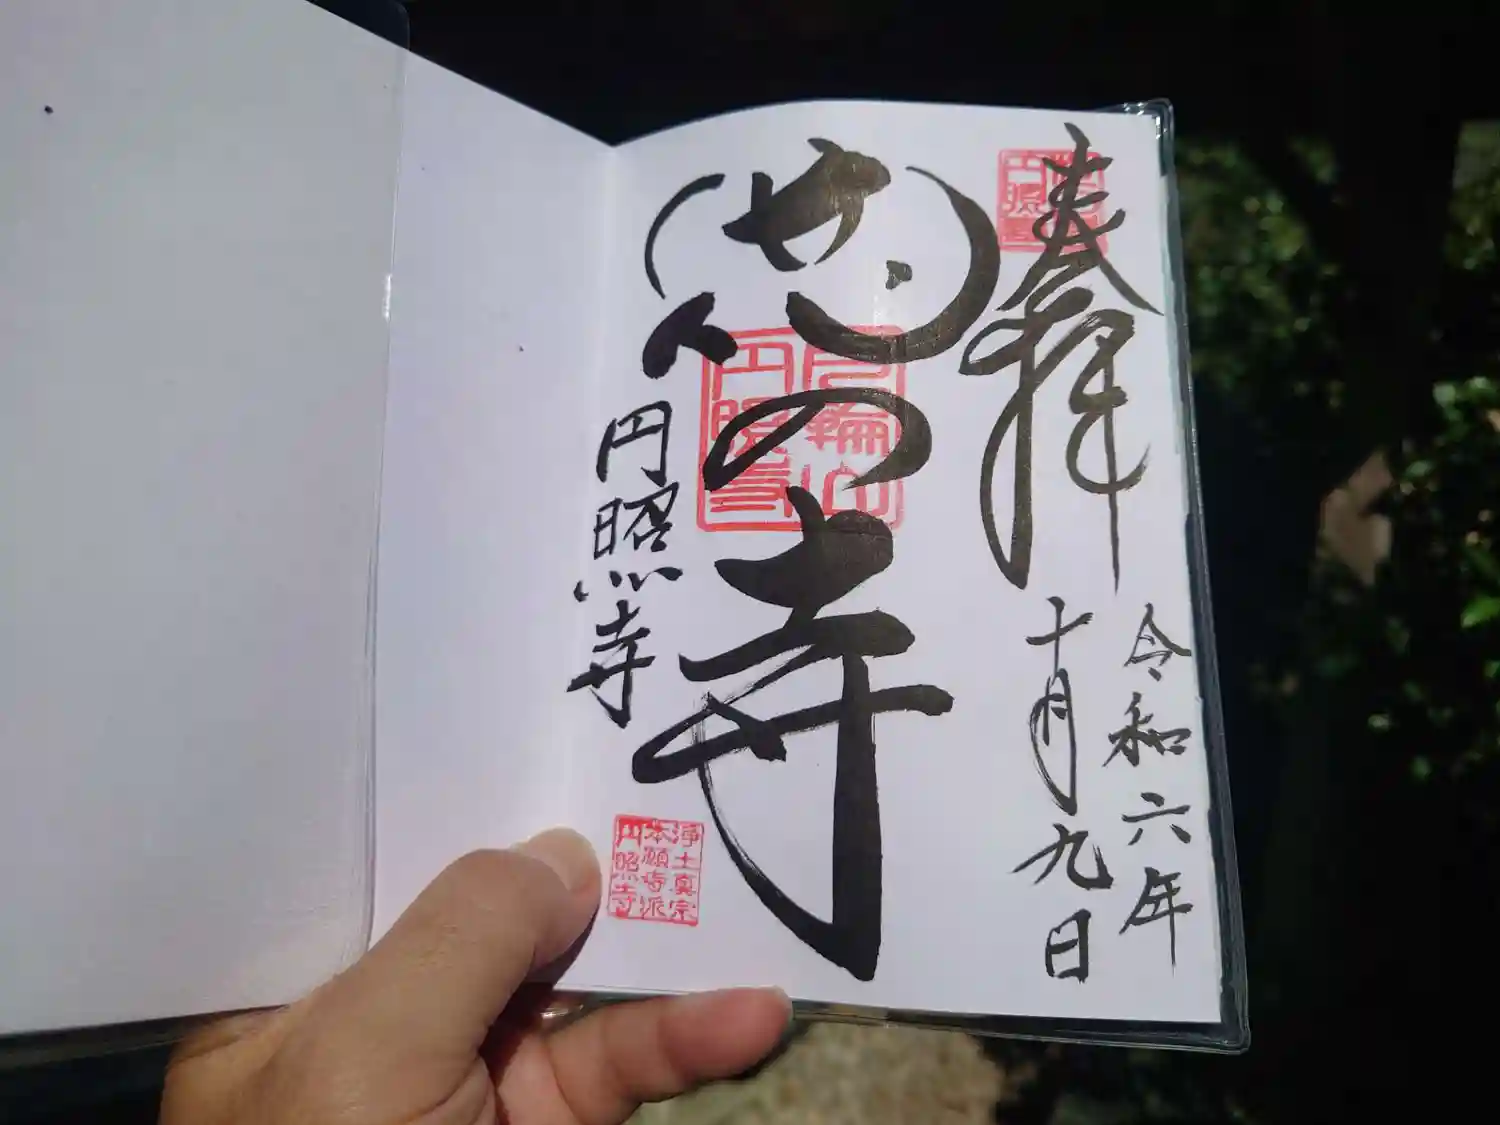 奉拝
令和六年
十月九日
の寺
円照寺
輪山
円照寺
浄土真宗
本願寺派
円照寺